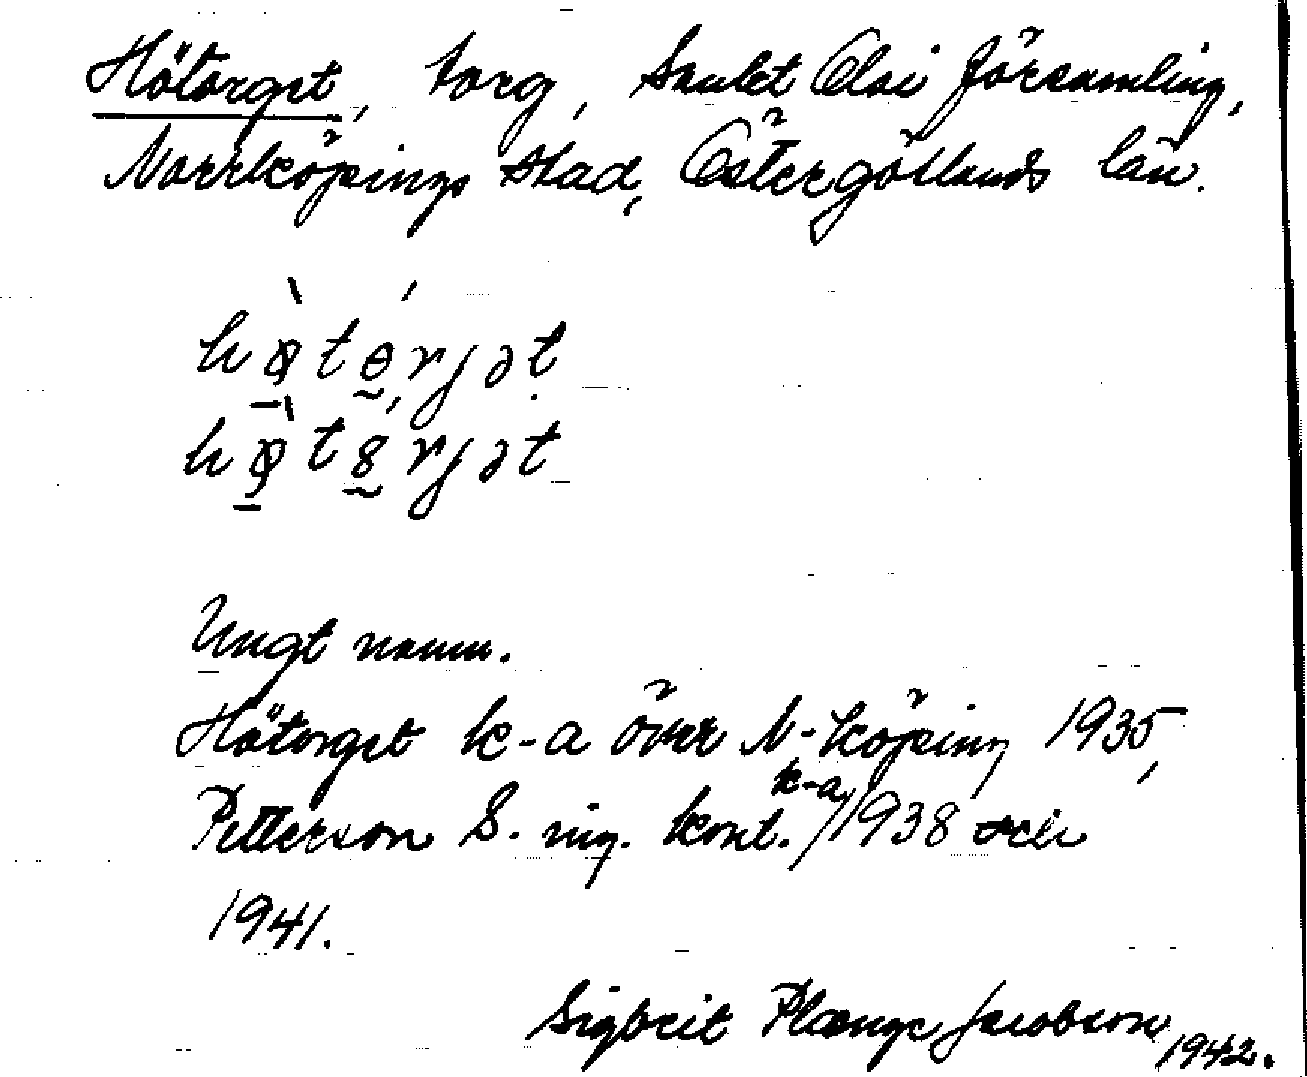 Hötorget, torg, Sankt Olai församling,
Norrköpings stad, Östergötlands län.
Ungt namn.
Hötorget k-a över N-köping 1935,
Petterson S. ing. kont. k-a, 1938 och
1941.
Sigbrit Plænge Jacobson 1942.